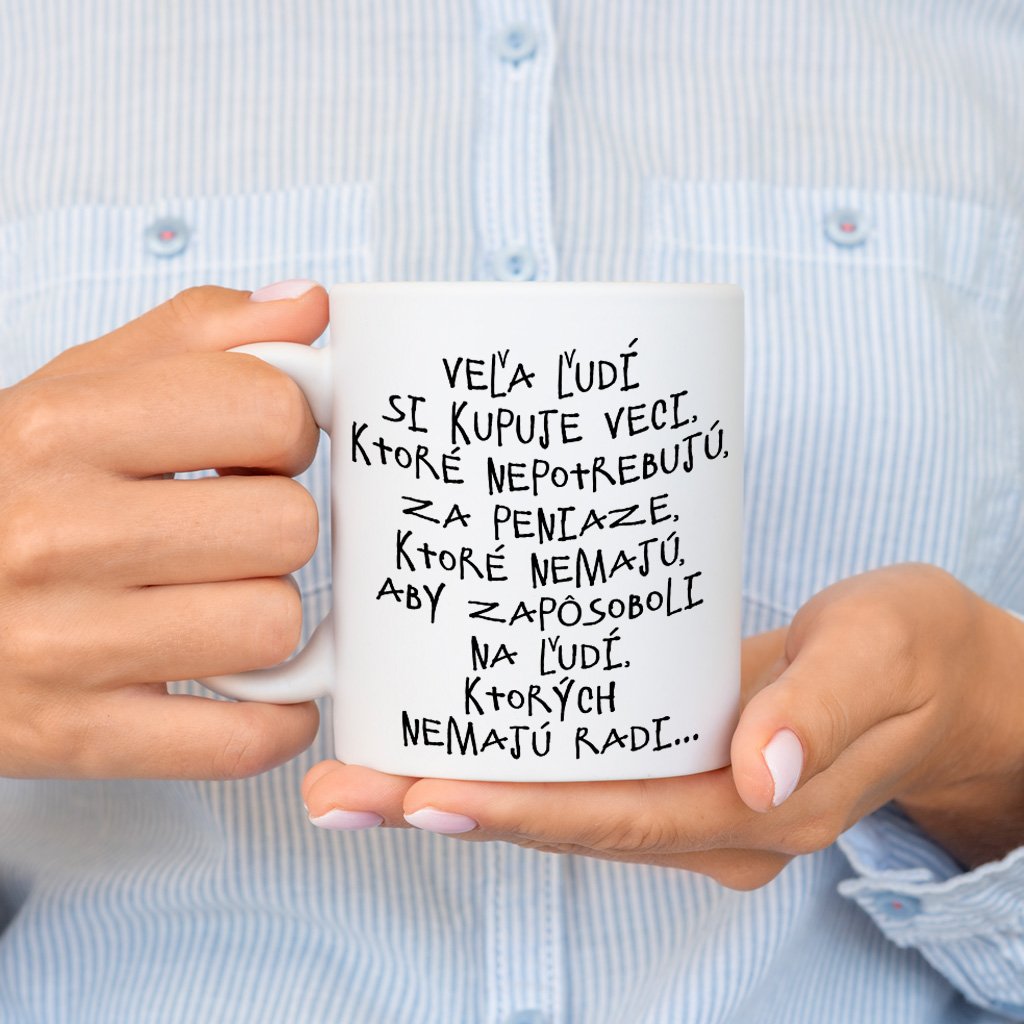 VEĽA ĽUDÍ
SI KUPUJE VECI,
KTORÉ NEPOTREBUJÚ,
ZA PENIAZE,
KTORÉ NEMAJÚ,
ABY ZAPÔSOBOLI
NA ĽUDÍ,
KTORÝCH
NEMAJÚ RADI...